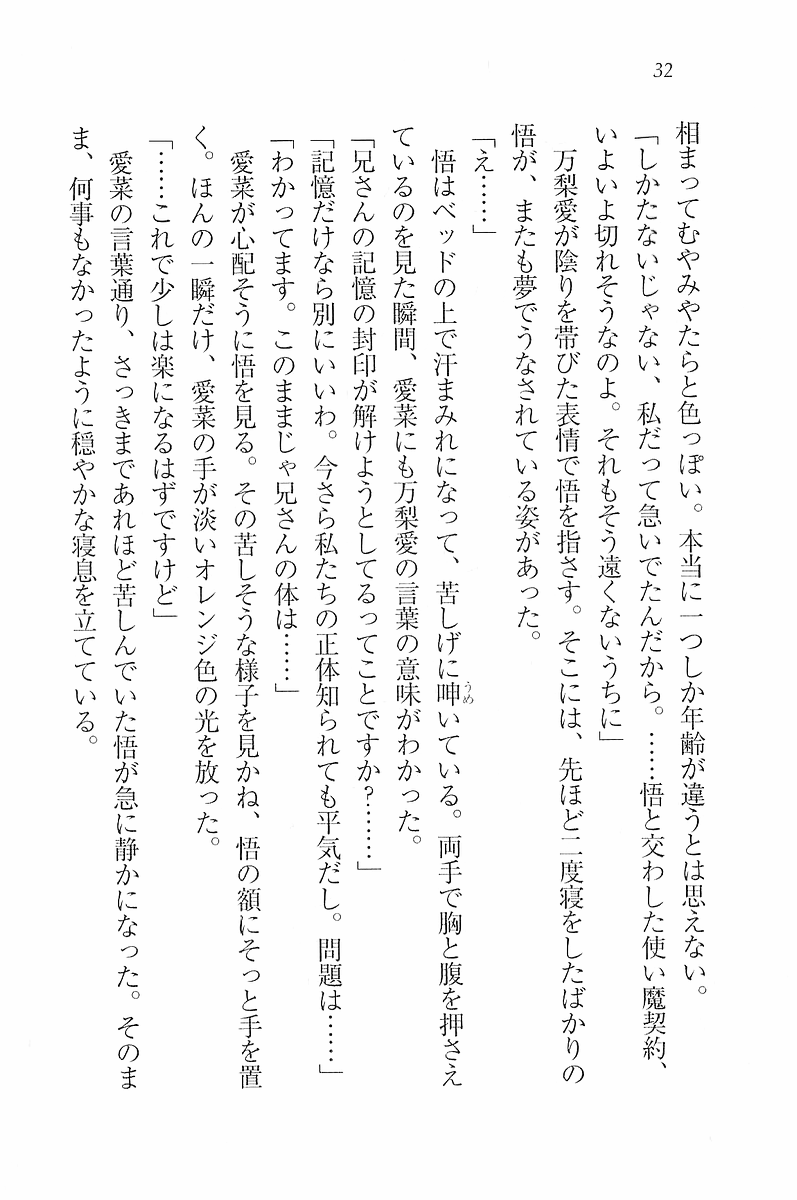 32
相まってむやみやたらと色っぽい。本当に一つしか年齢が違うとは思えない。
「しかたないじゃない、私だって急いでたんだから。……悟と交わした使い魔契約、
いよいよ切れそうなのよ。それもそう遠くないうちに」
万梨愛が陰りを帯びた表情で悟を指さす。そこには、先ほど二度寝をしたばかりの
悟が、またも夢でうなされている姿があった。
「え……」
悟はベッドの上で汗まみれになって、苦しげに呻いている。両手で胸と腹を押さえ
ているのを見た瞬間、愛菜にも万梨愛の言葉の意味がわかった。
「兄さんの記憶の封印が解けようとしてるってことですか？……」
「記憶だけなら別にいいわ。今さら私たちの正体知られても平気だし。問題は……」
「わかってます。このままじゃ兄さんの体は……」
愛菜が心配そうに悟を見る。その苦しそうな様子を見かね、悟の額にそっと手を置
く。ほんの一瞬だけ、愛菜の手が淡いオレンジ色の光を放った。
「……これで少しは楽になるはずですけど」
愛菜の言葉通り、さっきまであれほど苦しんでいた悟が急に静かになった。そのま
ま、何事もなかったように穏やかな寝息を立てている。
うめ